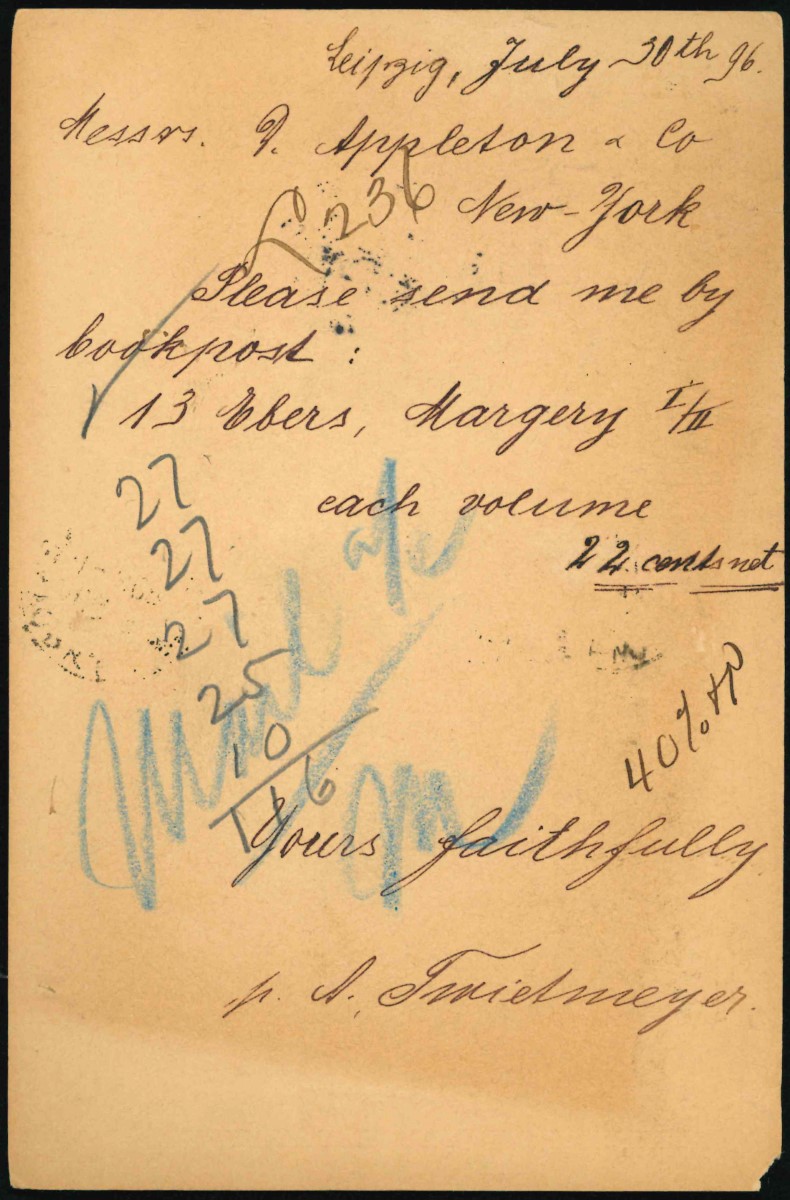 Leipzig, July 30th 96.
Messrs. D. Appleton & Co
236
New-York
Please send me by
bookpost :
13 Ebers, Margery I/II
each volume
22 cents net
27
27
27
25
10
116
40%
Yours faithfully
p. A. Twietmeyer.